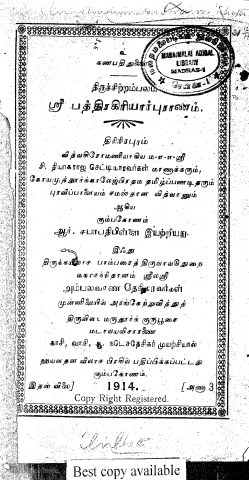 கணபதி துணை
MARAIMALAI ADIGAL
LIBRARY
MADRAS-1
திருச்சிற்றம்பலம்
ஸ்ரீ பத்திரகிரியார்புராணம்.
திரிசிரபுரம்
வித்வசிரோமணியாகிய ம-ள-ள-ஸ்ரீ
சி. தியாகராஜ செட்டியாரவர்கள் மாணாக்கரும்,
கோயமுத்தூர்க்காலேஜ்பிரதம தமிழ்ப்பண்டிதரும்
புரவிப்பாளையம் சமஸ்தான வித்வானும்
ஆகிய
கும்பகோணம்
ஆர். சபாபதிபிள்ளை இயற்றியது.
இஃது
திருக்கயிலாச பரம்பரைத் திருவாவடுதுறை
மகாசந்நிதானம் ஸ்ரீலஸ்ரீ
அம்பலவாண தேசிகரவர்கள்
முன்னிலையில் அரங்கேற்றுவித்துத்
திருவிடைமருதூர்க் குருபூசை
மடாலயவிசாரணை
காசி, வாசி, சூ. நடேசதேசிகர் முயற்சியால்
கும்பகோணம்.
இதன் விலை] 1914. [அணா 3
Copy Right Registered.
Best copy available